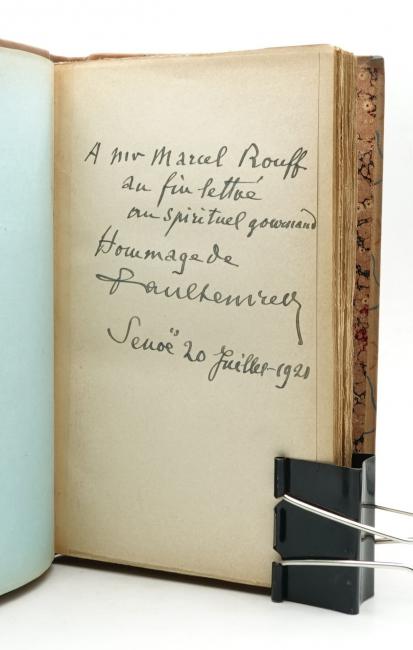 A mr Marcel Rouff
au fin lettré
au spirituel gourmand
Hommage de
Senoë 20 Juillet-1921